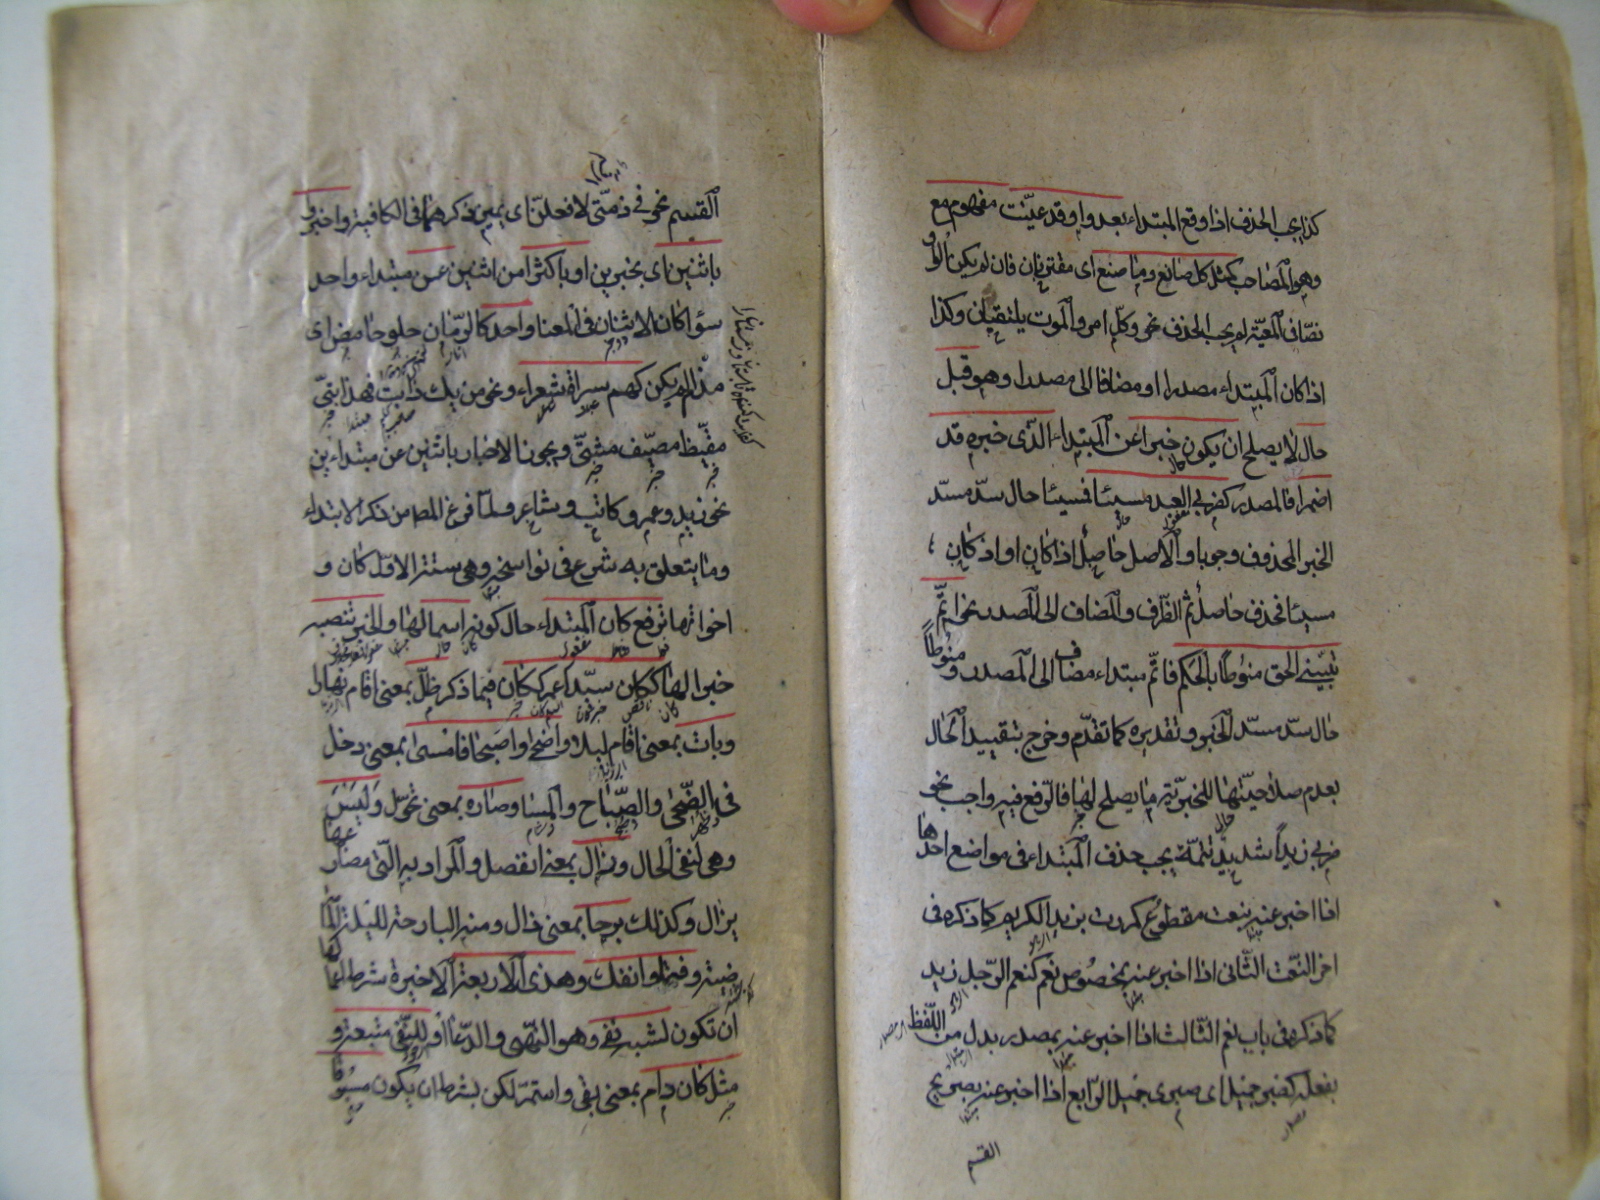 كذا يجب الحذف اذا وقع المبتداء بعد واو قد عيّنت مفهوم مع
وهو المصاحب كمثل كل صانع وما صنع اى مقترنان فان لم يكن الواو
نصّا فى المعيّة لم يجب الحذف نحو وكلّ امرء والموت يلتقيان وكذا
اذا كان المبتداء مصدرا او مضافا الى مصدر وهو قبل
حال لا يصلح ان يكون خبرا عن المبتداء الذى خبره قد
اضمرا فالمصدر كضربى العبد مسيئا فمسيئا حال سدّ مسدّ
الخبر المحذوف وجوبا والاصل حاصل اذا كان او اذ كان
مسيئا فحذف حاصل ثم الظرف والمضاف الى المصدر نحو اتمّ
تبيينى الحق منوطا بالحكم فاتمّ مبتداء مضاف الى المصدر ومنوطاً
حال سدّ مسدّ الخبر وتقديره كما تقدّم وخرج بتقييد الحال
بعدم صلاحيّتها للخبريّة ما يصلح لها فالرّفع فيه واجب نحو
ضربى زيداً شديد تتمّة يجب حذف المبتداء فى مواضع احدها
اذا اخبر عنه بنعت مقطوع كمررت بزيد الكريم كما ذكره فى
اخر النعت الثانى اذا اخبر عنه بمخصوص نعم كنعم الرّجل زيد
كما ذكره فى باب نعم الثالث اذا اخبر عنه بمصدر بدل من اللّفظ
بفعله كصبر جميل اى صبرى جميل الرّابع اذا اخبر عنه بصريح
القسم
القسم نحو فى ذمّتى لافعلنّ اى يمين ذكرهما فى الكافية واخبروا
باثنين اى بخبرين او باكثرا من اثنين عن مبتداء واحد
سواء كان الاثنان فى المعنا واحد كالرّمّان حلو حامض اى
مزّ ام لم يكن كهم سراة شعراء ونحو من يك ذا بتّ فهذا بتّى
مقيّظ مصيّف مشتّى ويجوز الاخبار باثنين عن مبتداءين
نحو زيد وعمرو كاتب وشاعر ولمّا فرغ المصـ من ذكر الابتداء
وما يتعلق به شرع فى نواسخه وهى ستّة الاوّل كان و
اخواتها ترفع كان المبتداء حال كونه اسما لها والخبر تنصبه
خبرا لها ككان سيّدا عمر ككان فيما ذكر ظلّ بمعنى اقام نهارا
وبات بمعنى اقام ليلا واضحى واصبحا وامسى بمعنى دخل
فى الضّحى والصّباح والمسا وصاره بمعنى تحوّل وليس
وهى لنفى الحال وزال بمعنى انفصل والمراد به الّتى مضارعها
يزال وكذلك برحا بمعنى زال ومنه البارحة لليلة الماضية
وفتئ وانفك وهذى الاربعة الاخيرة شرط اعمالها
ان تكون لشبه نفى وهو النهى والدّعا او للنّفى متبعة و
مثل كان دام بمعنى بقى واستمرّ لكن بشرط ان يكون مسبوقا